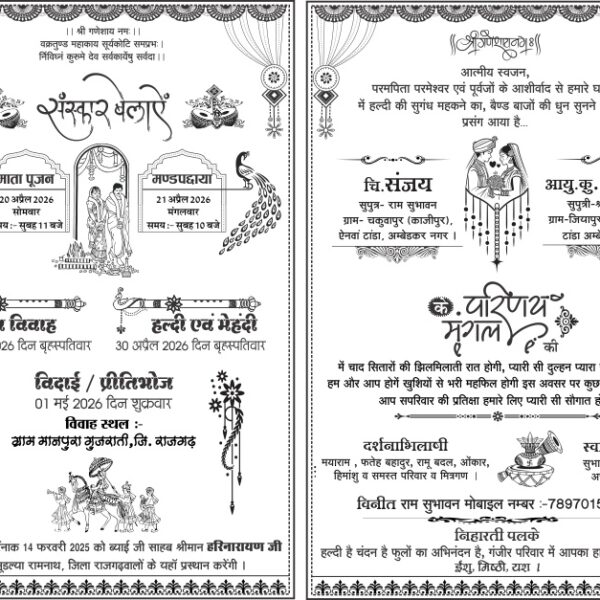 ।। श्री गणेशाय नमः ।।
वक्रतुण्ड महाकाय सूर्यकोटि समप्रभः।
र्निविघ्नं कुरुमे देव सर्वकार्येषु सर्वदा।।
संस्कार बेलाऐं
माता पूजन
20 अप्रैल 2026
सोमवार
समय :- सुबह 11 बजे
मण्डपछाया
21 अप्रैल 2026
मंगलवार
समय :- सुबह 10 बजे
विवाह
2026 दिन बृहस्पतिवार
हल्दी एवं मेहंदी
30 अप्रैल 2026 दिन बृहस्पतिवार
विदाई / प्रीतिभोज
01 मई 2026 दिन शुक्रवार
विवाह स्थल :-
ग्राम मानपुरा गुजराती,जि. राजगढ़
14 फरवरी 2025 को ब्याई जी साहब श्रीमान हरिनारायण जी
रामनाथ, जिला राजगढ़वालों के यहाँ प्रस्थान करेंगी ।
॥ श्री गणेशाय नमः ॥
आत्मीय स्वजन,
परमपिता परमेश्वर एवं पूर्वजों के आशीर्वाद से हमारे
में हल्दी की सुगंध महकने का, बैण्ड बाजों की धुन सुनने
प्रसंग आया है...
चि. संजय
सुपुत्र- राम सुभावन
ग्राम- चकुवापुर (काजीपुर),
ऐनवां टांडा, अम्बेडकर नगर ।
आयु. कु.
सुपुत्री-
ग्राम-जियापुर
टांडा
के परिणय
मंगल की
में चाद सितारों की झिलमिलाती रात होगी, प्यारी सी दुल्हन प्यारा
हम और आप होगें खुशियों से भरी महफिल होगी इस अवसर पर कुछ
आप सपरिवार की प्रतिक्षा हमारे लिए प्यारी सी सौगात
दर्शनाभिलाषी
मयाराम , फतेह बहादुर, रामू बदल, ओंकार,
हिमांशु व समस्त परिवार व मित्रगण ।
विनीत राम सुभावन मोबाइल नम्बर :-7897015
निहारती पलके
हल्दी है चंदन है फुलों का अभिनंदन है, गंजीर परिवार में आपका
ईशु, मिष्ठी, यश ।